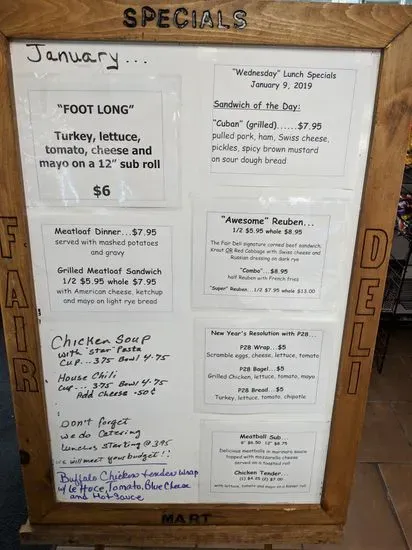 SPECIALS
January...
"FOOT LONG"
Turkey, lettuce,
tomato, cheese and
mayo on a 12" sub roll
$6
Meatloaf Dinner...$7.95
served with mashed potatoes
and gravy
Grilled Meatloaf Sandwich
1/2 $5.95 whole $7.95
with American cheese, ketchup
and mayo on light rye bread
Chicken Soup
with "star" Pasta
Cup...3.75 Bowl 4.75
House Chili
Cup...3.75 Bowl 4.75
Add Cheese .50¢
Don't forget
we do Catering
lunches starting @ 3.95
we will meet your budget!!
Buffalo Chicken tender wrap
w/ lettuce, Tomato, Blue Cheese
and Hot Sauce
"Wednesday" Lunch Specials
January 9, 2019
Sandwich of the Day:
"Cuban" (grilled)......$7.95
pulled pork, ham, Swiss cheese,
pickles, spicy brown mustard
on sour dough bread
"Awesome" Reuben...
1/2 $5.95 whole $8.95
The Fair Deli signature corned beef sandwich,
Kraut OR Red Cabbage with Swiss cheese and
Russian dressing on dark rye
"Combo"...$8.95
half Reuben with French fries
"Super" Reuben...1/2 $7.95 whole $13.00
New Year's Resolution with P28...
P28 Wrap...$5
Scramble eggs, cheese, lettuce, tomato
P28 Bagel...$5
Grilled Chicken, lettuce, tomato, mayo
P28 Bread...$5
Turkey, lettuce, tomato, chipotle
Meatball Sub...
6" $6.50 12" $8.75
Delicious meatballs in marinara sauce
topped with mozzarella cheese
served on a toasted roll
Chicken Tender...
(1) $4.25 (2) $7.00
with lettuce, tomato and mayo on a kaiser roll
FAIR
DELI
MART